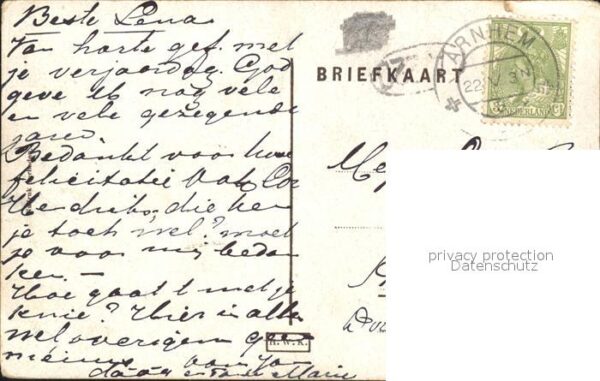 Beste Lena
Van harte gef. met
je verjaardag. God
geve U nog vele
en vele gezegende
jaren
Bedankt voor uw
felicitatie ook Cor
Hendriks, die ken
je toch wel? moet
je voor mij bedan
ken. —
Hoe gaat 't met je
knie? Hier is alles
wel overigens geen
nieuws
Marie
BRIEFKAART
ARNHEM
22
3N
NEDERLAND
Mej
H.W.K.
privacy protection
Datenschutz